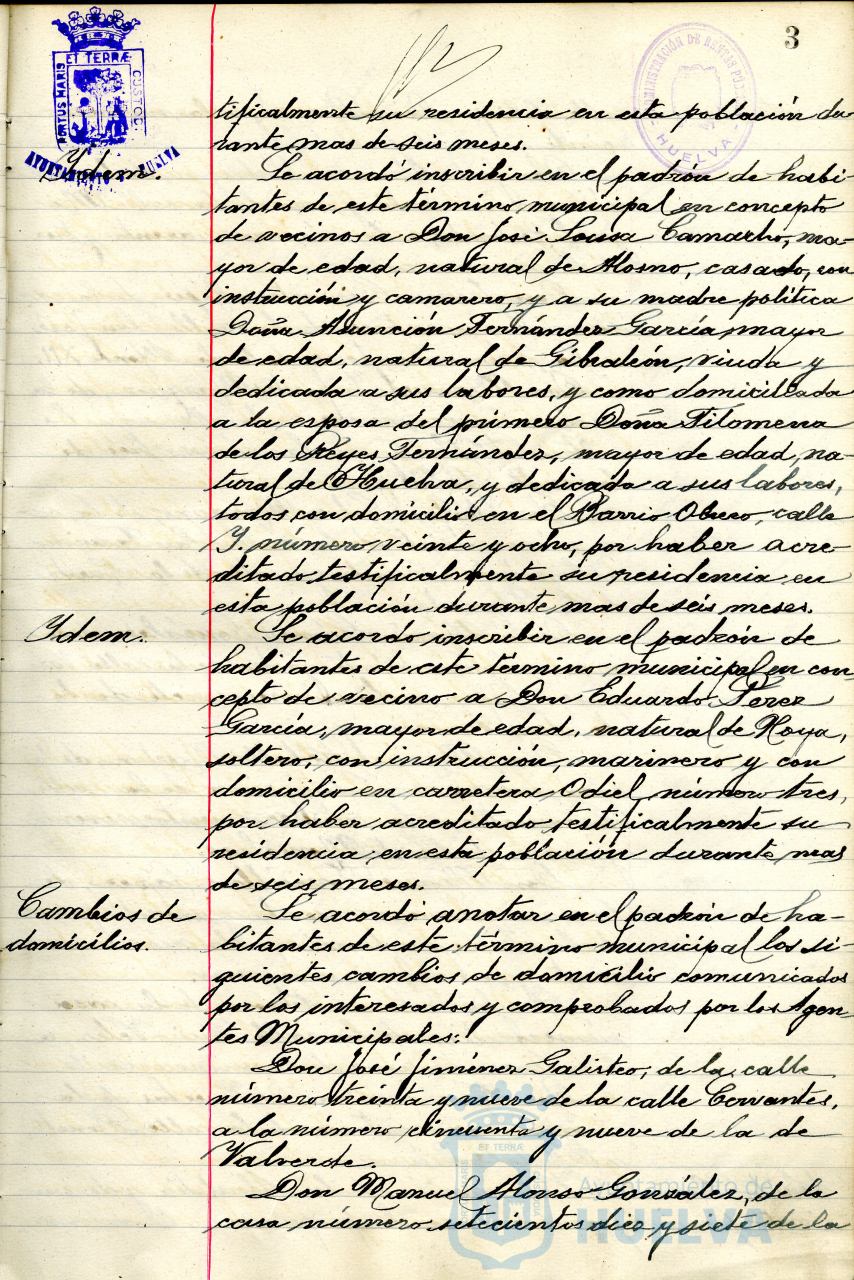 3
ET TERRÆ
PORTUS MARIS
CUSTOD.
AYUNTAMIENTO HUELVA
ADMINISTRACIÓN DE RENTAS
HUELVA
tificalmente su residencia en esta población du-
rante mas de seis meses.
Ydem.
Se acordó inscribir en el padrón de habi-
tantes de este término municipal en concepto
de vecinos a Don José Sousa Camacho, ma-
yor de edad, natural de Alosno, casado, con
instrucción y camarero, y a su madre política
Doña Asunción Fernández García, mayor
de edad, natural de Gibraleón, viuda y
dedicada a sus labores, y como domiciliada
a la esposa del primero Doña Filomena
de los Reyes Fernández, mayor de edad, na-
tural de Huelva, y dedicada a sus labores,
todos con domicilio en el Barrio Obrero, calle
Y. número veinte y ocho, por haber acre-
ditado testificalmente su residencia en
esta población durante mas de seis meses.
Ydem.
Se acordó inscribir en el padrón de
habitantes de este término municipal en con-
cepto de vecino a Don Eduardo Perez
García, mayor de edad, natural de Moya,
soltero, con instrucción, marinero y con
domicilio en carretera Odiel, número tres,
por haber acreditado testificalmente su
residencia en esta población durante mas
de seis meses.
Cambios de
domicilios.
Se acordó anotar en el padrón de ha-
bitantes de este término municipal los si-
guientes cambios de domicilio comunicados
por los interesados y comprobados por los Agen-
tes Municipales:
Don José Jiménez Galisteo, de la calle
número treinta y nueve de la calle Cervantes,
a la número cincuenta y nueve de la de
Valverde.
Don Manuel Alonso González, de la
casa número setecientos diez y siete de la
Ayuntamiento de
HUELVA